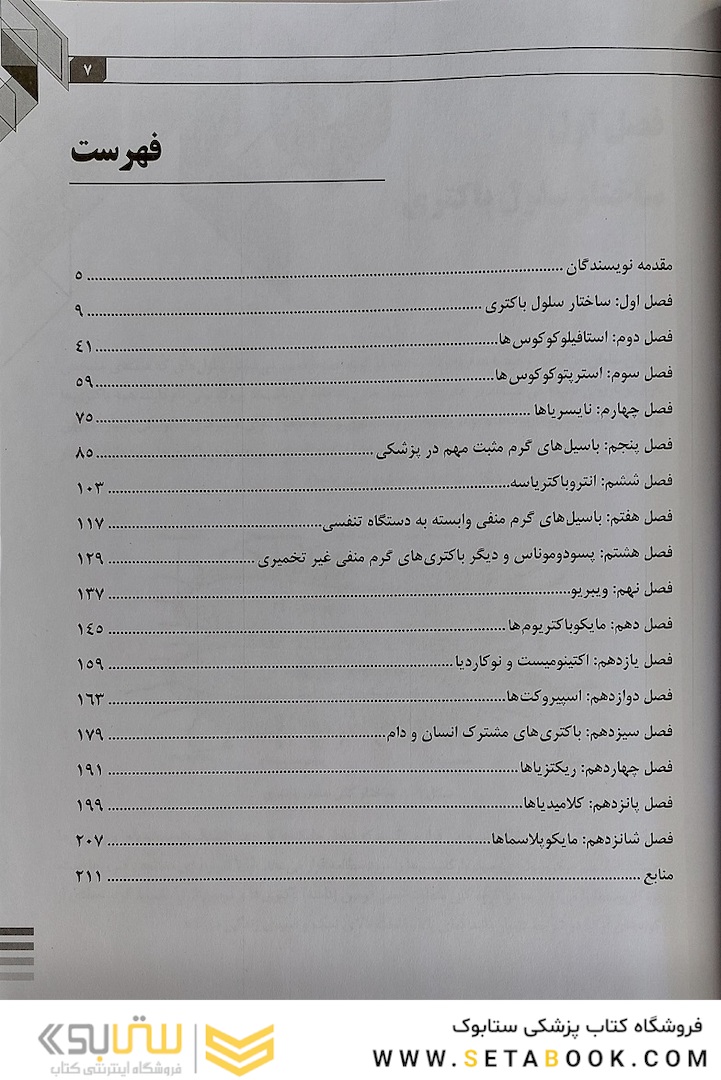 ۷
فهرست
مقدمه نویسندگان ۵
فصل اول: ساختار سلول باکتری ۹
فصل دوم: استافیلوکوکوس‌ها ۴۱
فصل سوم: استرپتوکوکوس‌ها ۵۹
فصل چهارم: نایسریاها ۷۵
فصل پنجم: باسیل‌های گرم مثبت مهم در پزشکی ۸۵
فصل ششم: انتروباکتریاسه ۱۰۳
فصل هفتم: باسیل‌های گرم منفی وابسته به دستگاه تنفسی ۱۱۷
فصل هشتم: پسودوموناس و دیگر باکتری‌های گرم منفی غیر تخمیری ۱۲۹
فصل نهم: ویبریو ۱۳۷
فصل دهم: مایکوباکتریوم‌ها ۱۴۵
فصل یازدهم: اکتینومیست و نوکاردیا ۱۵۹
فصل دوازدهم: اسپیروکت‌ها ۱۶۳
فصل سیزدهم: باکتری‌های مشترک انسان و دام ۱۷۹
فصل چهاردهم: ریکتزیاها ۱۹۱
فصل پانزدهم: کلامیدیاها ۱۹۹
فصل شانزدهم: مایکوپلاسماها ۲۰۷
منابع ۲۱۱
فروشگاه کتاب پزشکی ستابوک
WWW.SETABOOK.COM
ستابوک
فروشگاه اینترنتی کتاب